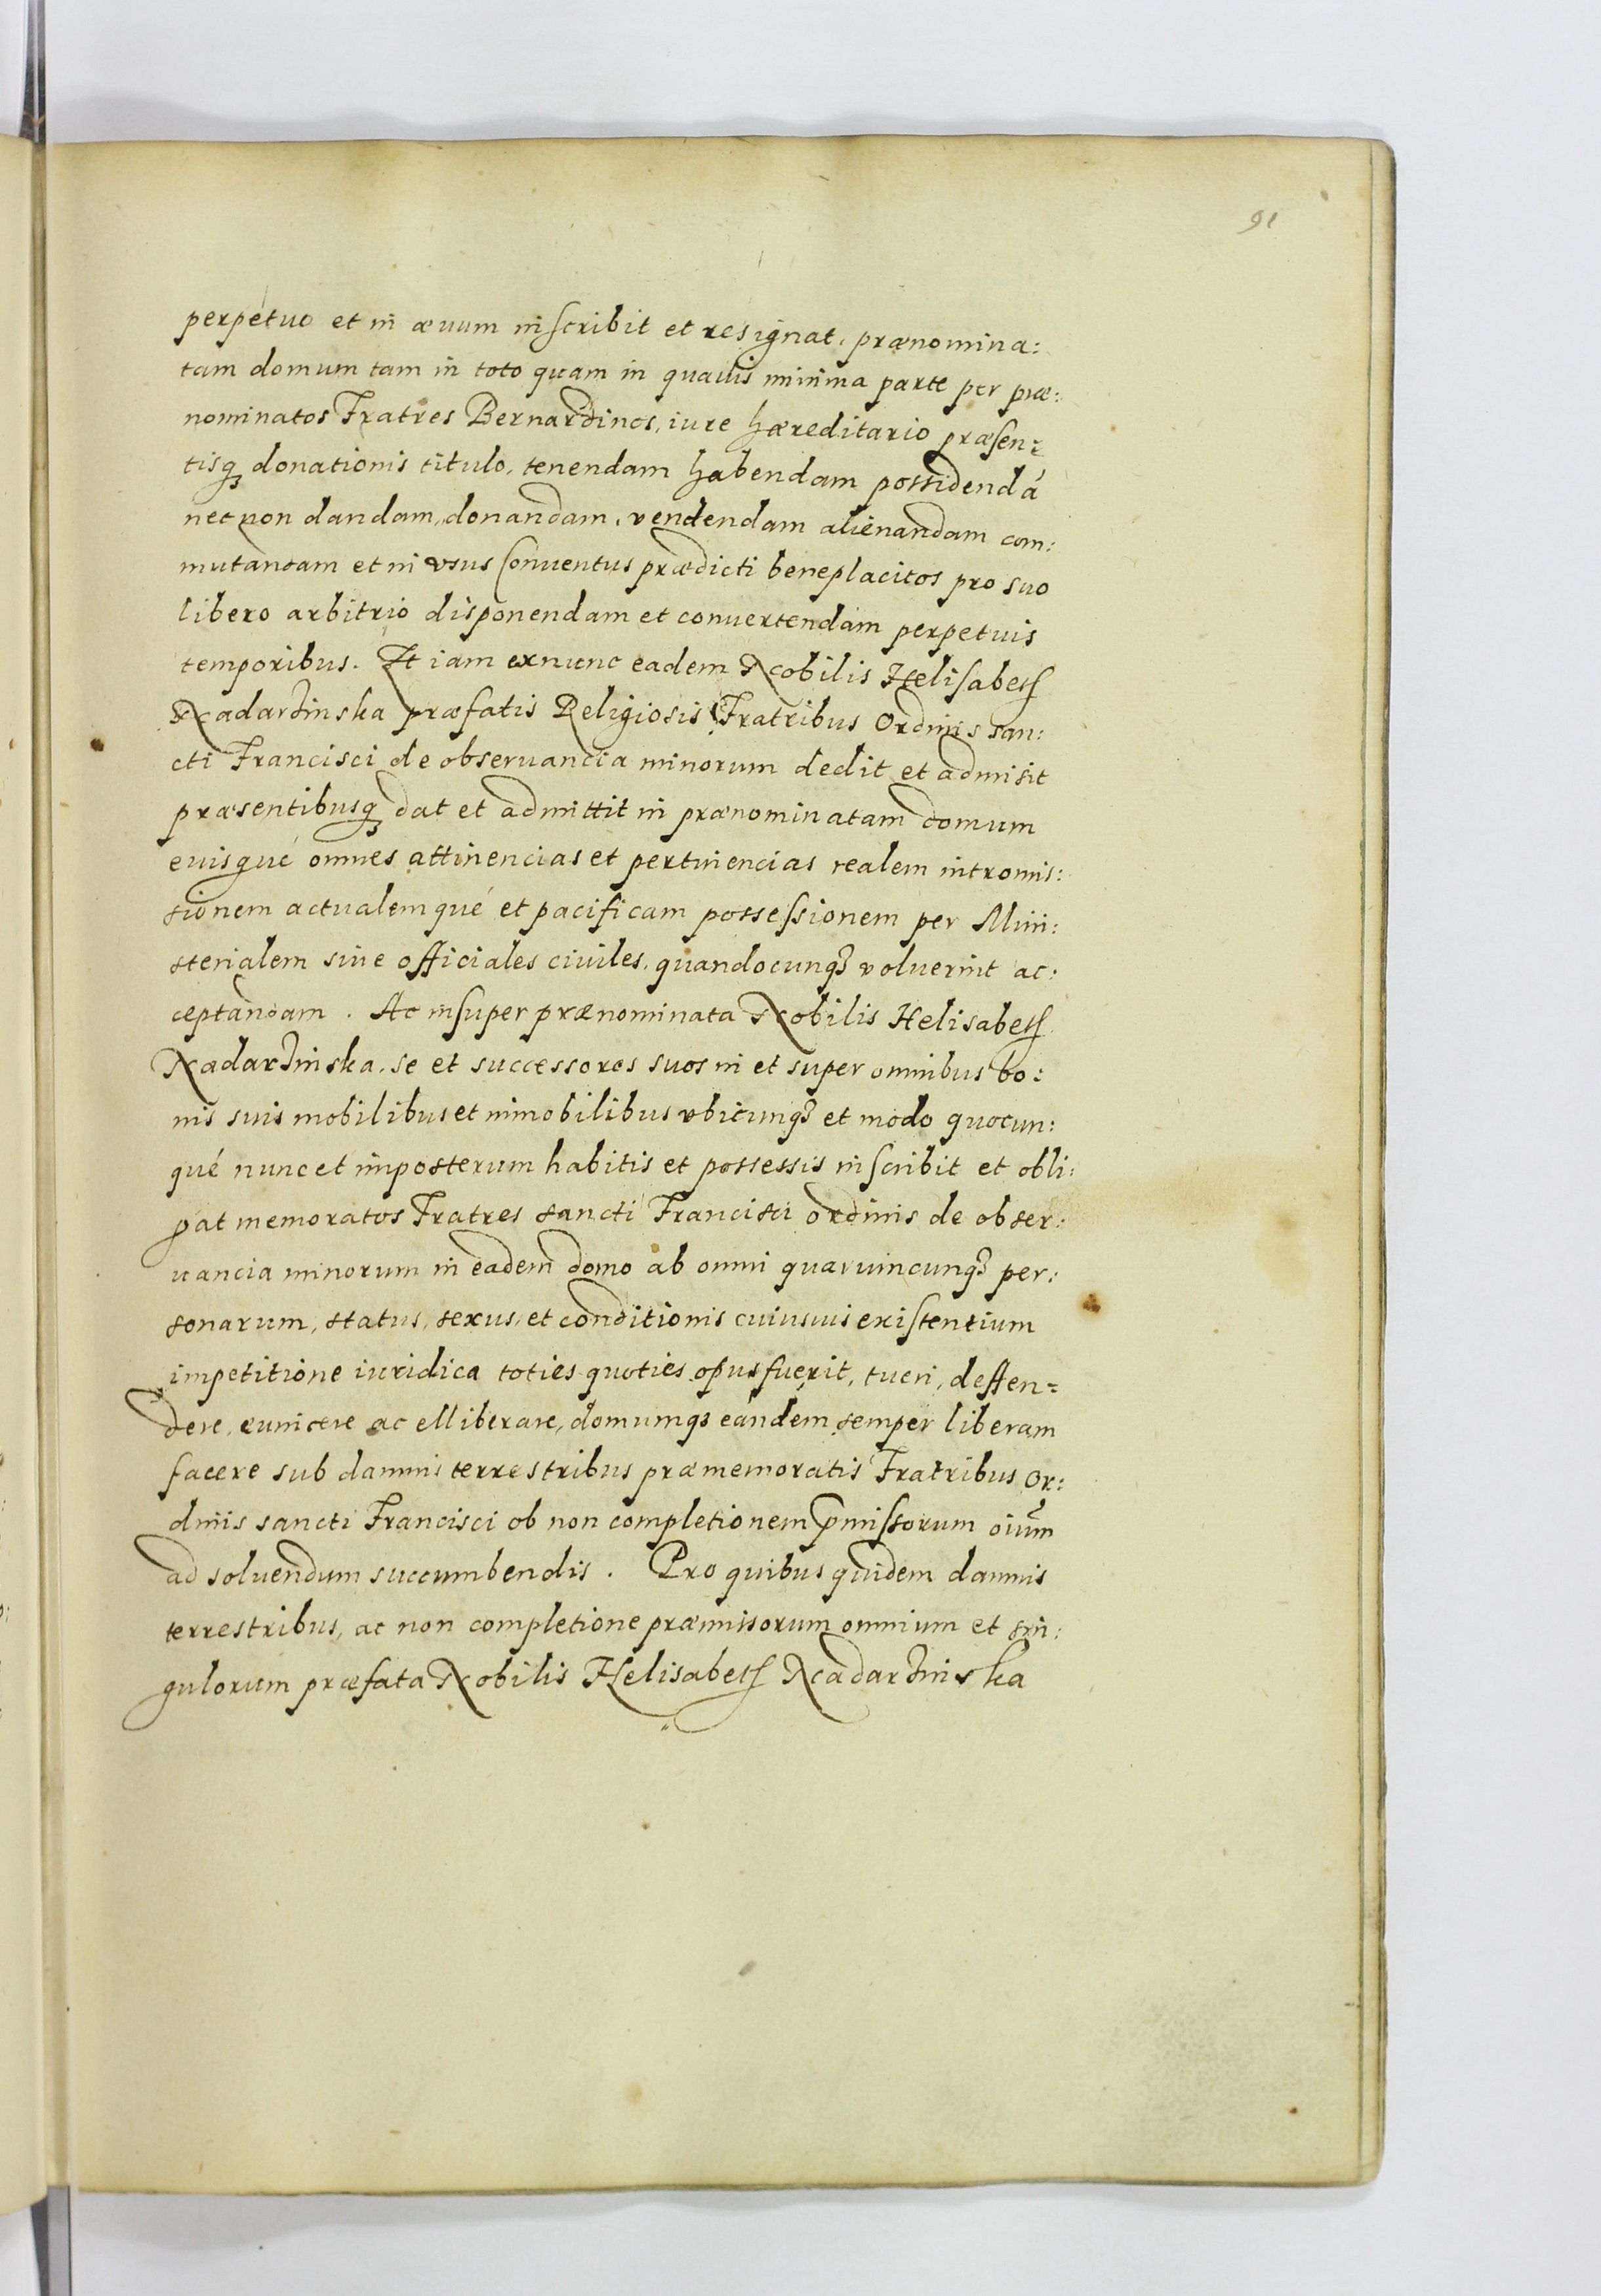 91
perpetuo et in æuum inscribit et resignat, prænomina:
tam domum tam in toto quam in quauis minima parte per præ:
nominatos Fratres Bernardinos, iure hæreditario præsen=
tisq₃ donationis titulo, tenendam habendam possidendá
nec non dandam, donandam, vendendam alienandam com:
mutandam et in vsus Conuentus prædicti beneplacitos pro suo
libero arbitrio disponendam et conuertendam perpetuis
temporibus. Et iam exnunc eadem Nobilis Helisabeth
Nadarzinska præfatis Religiosis Fratribus Ordinis san:
cti Francisci de obseruancia minorum dedit et admisit
præsentibusq₃ dat et admittit in prænominatam domum
euisqué omnes attinencias et pertinencias realem intromis:
sionem actualemqué et pacificam possessionem per Mini:
sterialem siue officiales ciuiles, quandocunq₃ voluerint ac:
ceptandam. Ac insuper prænominata Nobilis Helisabeth
Nadarzinska, se et successores suos in et super omnibus bo:
nis suis mobilibus et immobilibus vbicunq₃ et modo quocun:
qué nunc et imposterum habitis et possessis inscribit et obli:
gat memoratos Fratres sancti Francisci ordinis de obser:
uancia minorum in eadem domo ab omni quaruncunq₃ per:
sonarum, status, sexus, et conditionis cuiusuis existentium
impetitione iuridica toties quoties opus fuerit, tueri, deffen=
dere, euincere ac elliberare, domumq₃ eandem semper liberam
facere sub damnis terrestribus præmemoratis Fratribus Or:
dinis sancti Francisci ob non completionem p̄missorum oiūm
ad soluendum succumbendis. Pro quibus quidem damnis
terrestribus, ac non completione præmissorum omnium et sin:
gulorum præfata Nobilis Helisabeth Nadarzinska